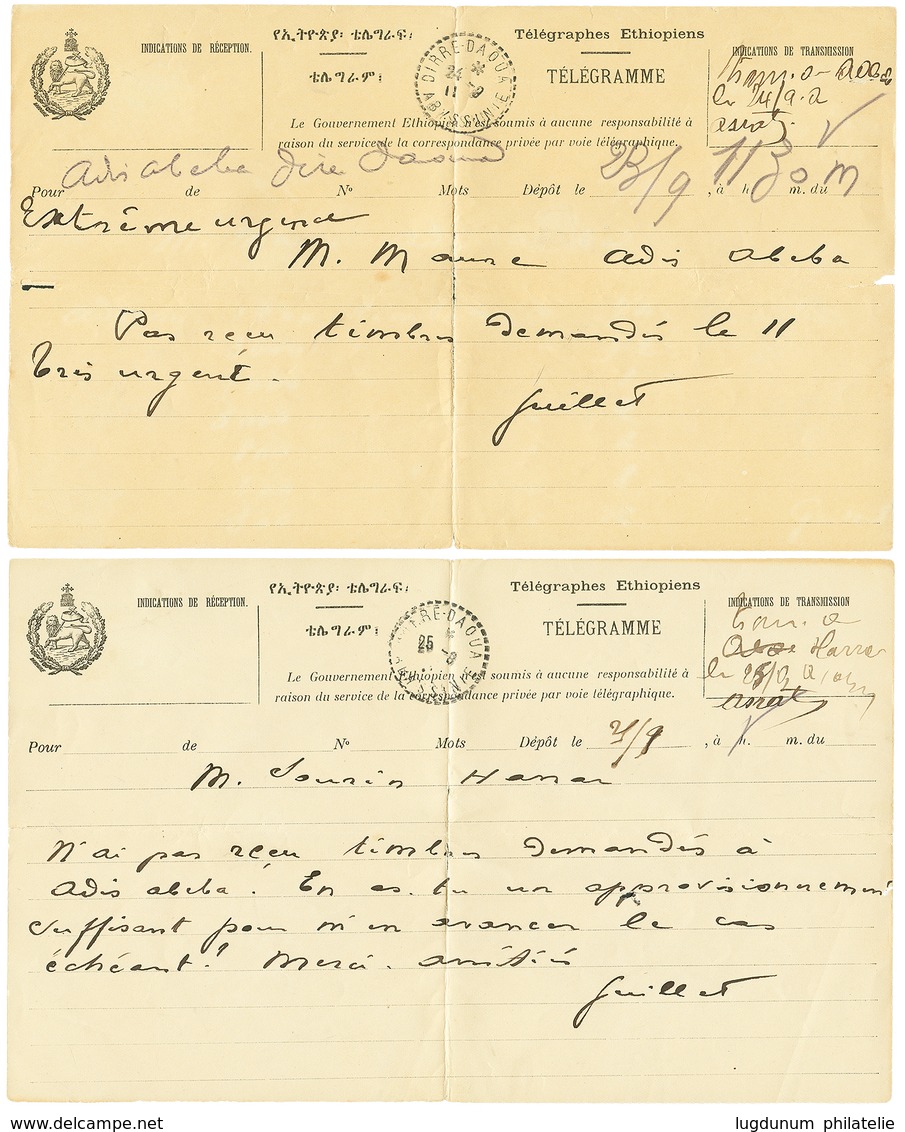 INDICATIONS DE RÉCEPTION.
የኢትዮጵያ፡ ቴሌግራፍ፡
ቴሌግራም፡
DIRRE-DAOUA
24
11 -9
ABYSSINIE
Télégraphes Ethiopiens
TÉLÉGRAMME
INDICATIONS DE TRANSMISSION
Le Gouvernement Ethiopien n'est soumis à aucune responsabilité à
raison du service de la correspondance privée par voie télégraphique.
Adis abeba Dire Daoua
Pour de No Mots Dépôt le 23/9, à 11 h. 30 m. du m
Extrême urgence
M. Maure Adis Abeba
Pas reçu timbres demandés le 11
Très urgent.
Guillet
INDICATIONS DE RÉCEPTION.
የኢትዮጵያ፡ ቴሌግራፍ፡
ቴሌግራም፡
DIRRE-DAOUA
25
-9
ABYSSINIE
Télégraphes Ethiopiens
TÉLÉGRAMME
INDICATIONS DE TRANSMISSION
Harrar
Le Gouvernement Ethiopien n'est soumis à aucune responsabilité à
raison du service de la correspondance privée par voie télégraphique.
Pour de No Mots Dépôt le , à h. m. du
M. Harrar
N'ai pas reçu timbres demandés à
Adis abeba. En as-tu un approvisionnement
suffisant pour m'en avancer le cas
échéant? Merci. amitiés
Guillet
www.delcampe.net
lugdunum philatelie